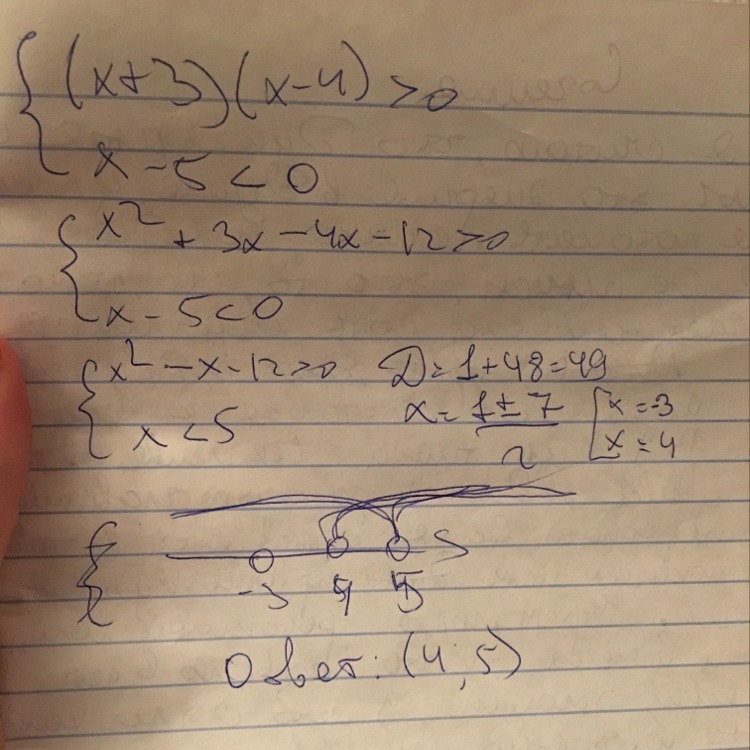 (x+3)(x-4)>0
x-5<0
x²+3x-4x-12>0
x-5<0
x²-x-12>0 D=1+48=49
x<5 x=(1±7)/2 x=-3
x=4
-3 4 5
Ответ: (4;5)